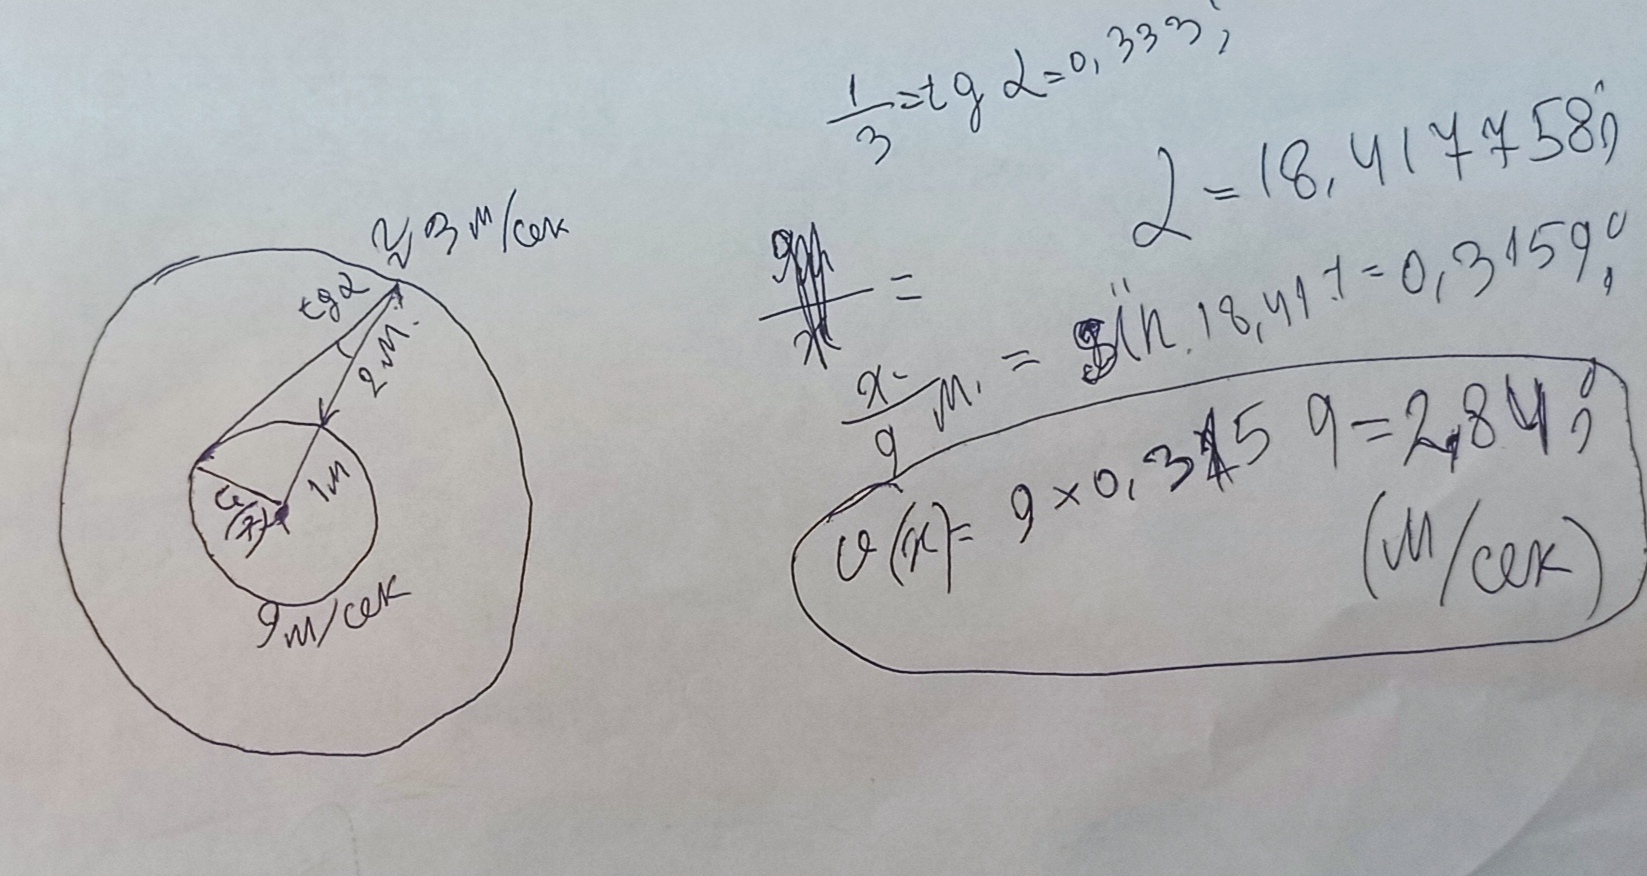 1/3 = tg α = 0,333;
α = 18,417758;
v 3 м/сек
tg α
2 м.
1 м
9 м/сек
x/9 м. = sin. 18,417 = 0,3159;
v(x) = 9 × 0,3159 = 2,84;
(м/сек)